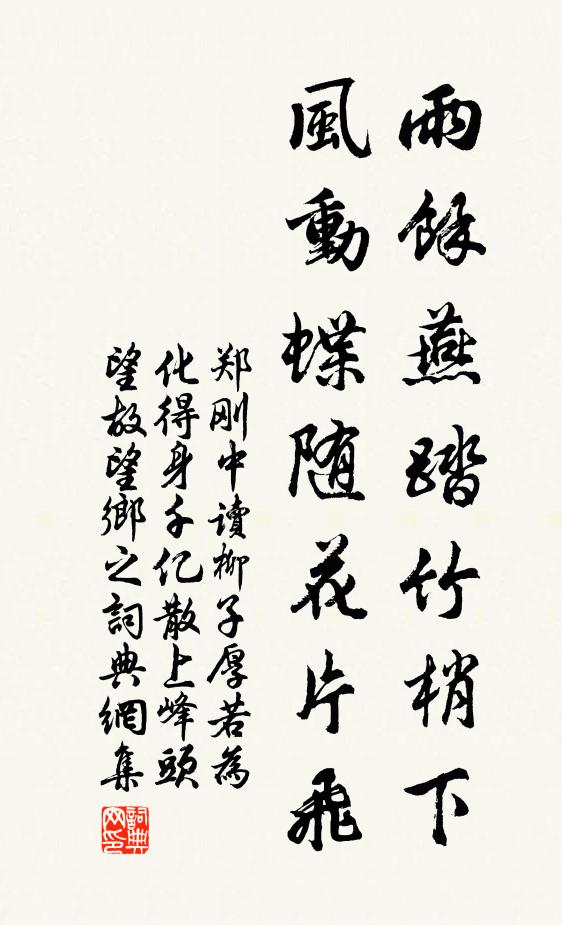 雨餘燕踏竹梢下
風動蝶随花片飛
郑刚中讀柳子厚若為
化得身千亿散上峰頭
望故望鄉之詞典網集
詞典网印